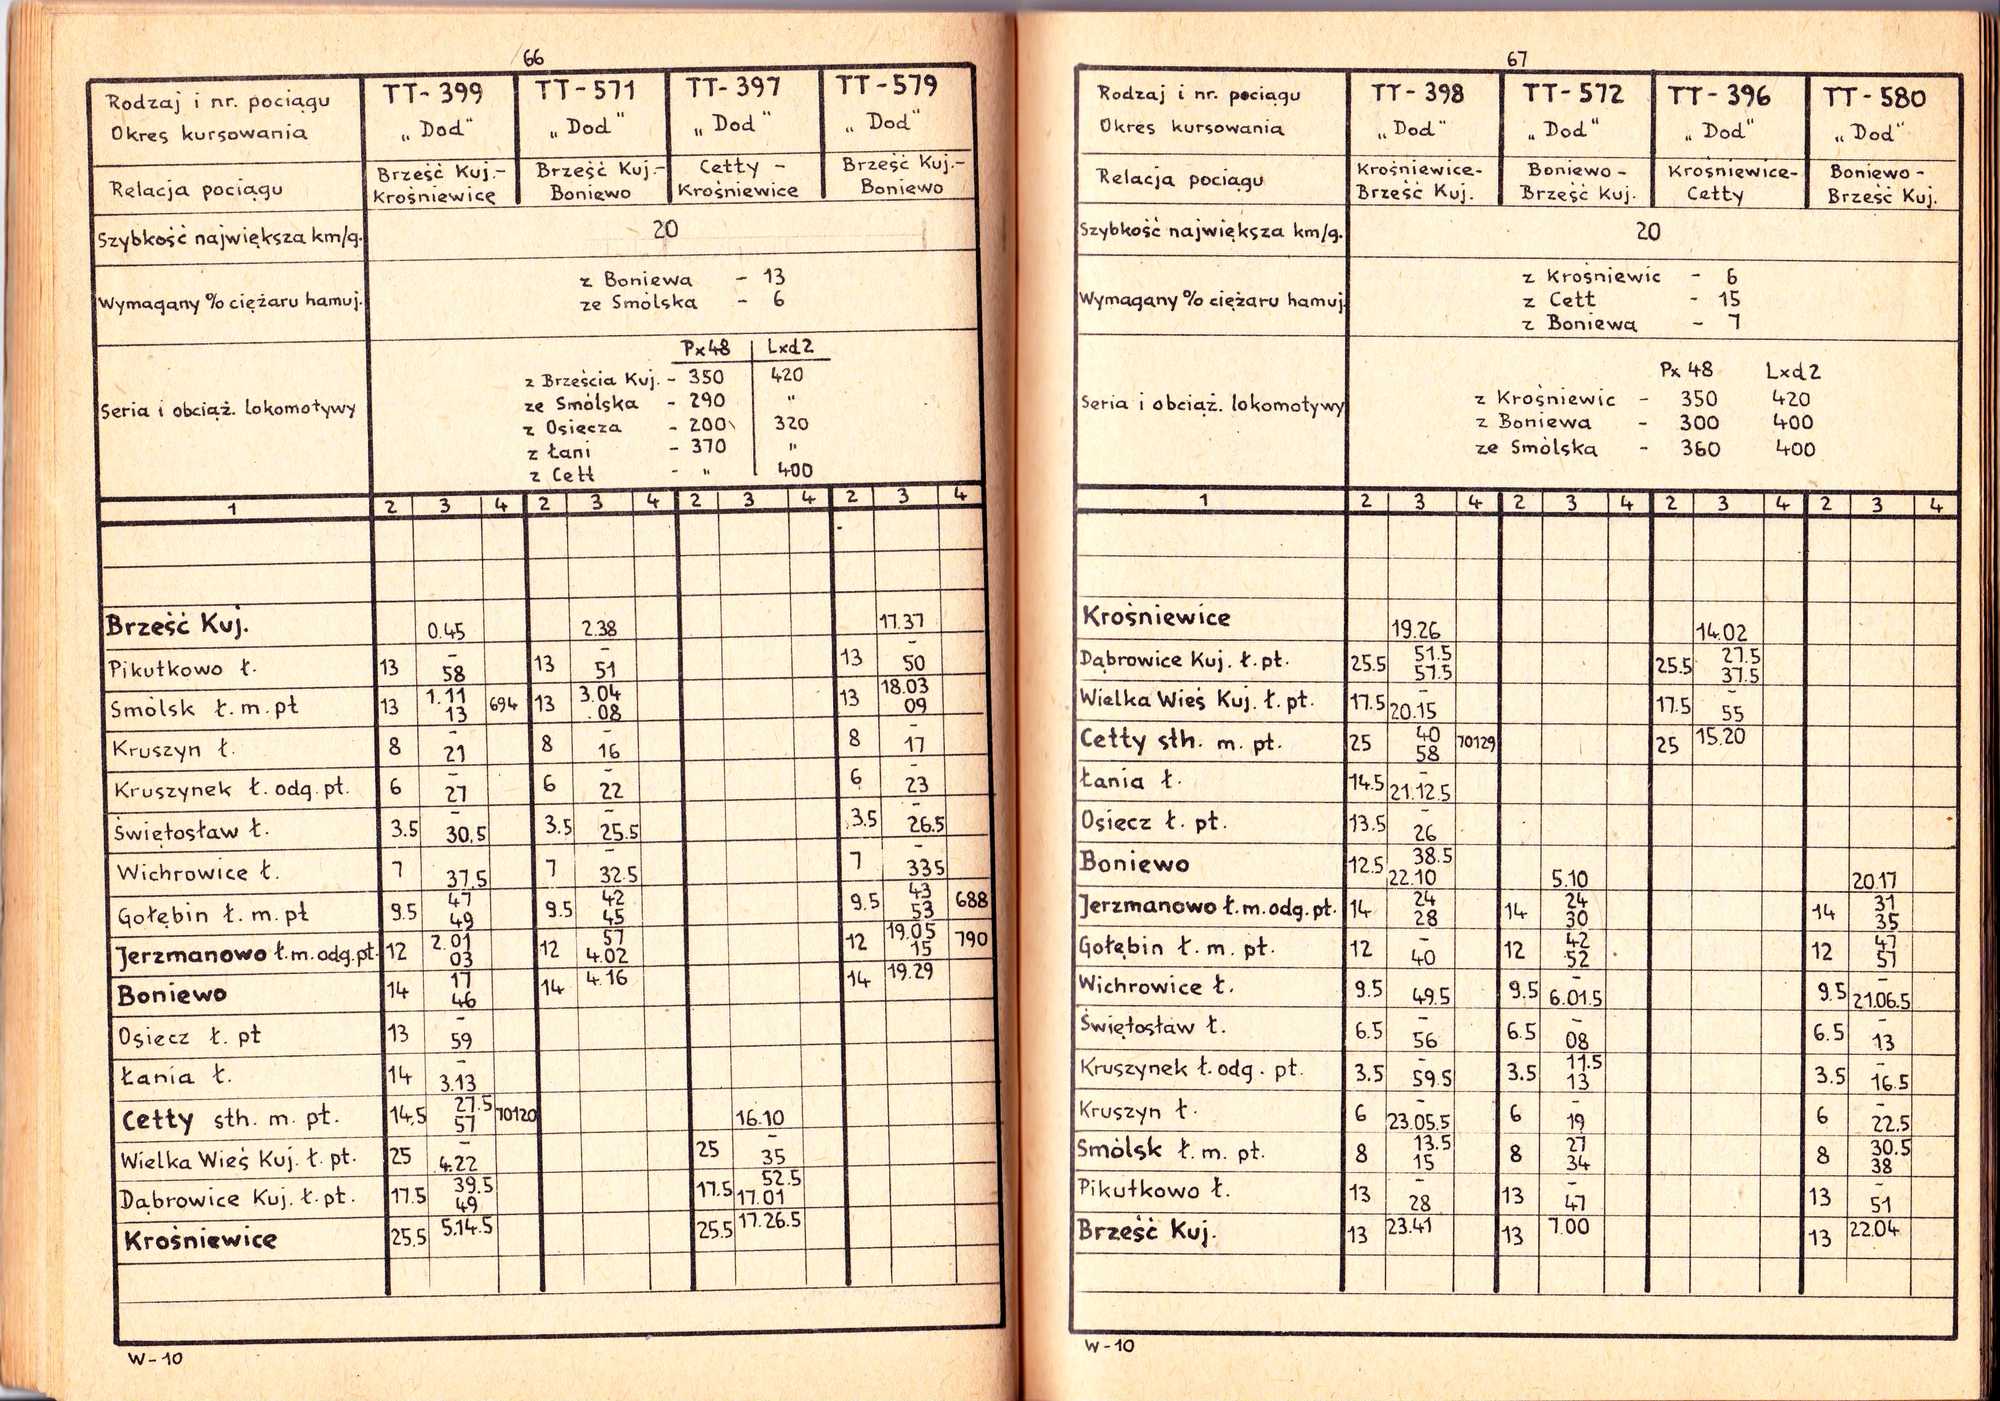 66
Rodzaj i nr. pociągu TT-399 TT-571 TT-397 TT-579
Okres kursowania „Dod" „Dod" „Dod" „Dod"
Relacja pociągu Brześć Kuj.- Krośniewice Brześć Kuj.- Boniewo Cetty - Krośniewice Brześć Kuj.- Boniewo
Szybkość największa km/g. 20
Wymagany % ciężaru hamuj. z Boniewa - 13
ze Smólska - 6
Seria i obciąż. lokomotywy Px48 Lxd2
z Brześcia Kuj. - 350 420
ze Smólska - 290 "
z Osiecza - 200 320
z Łani - 370 "
z Cett - " 400
1 2 3 4 2 3 4 2 3 4 2 3 4
Brześć Kuj. 0.45 2.38 17.37
Pikutkowo ł. 13 – 58 13 – 51 13 – 50
Smólsk ł. m. pt 13 1.11 13 694 13 3.04 .08 13 18.03 09
Kruszyn ł. 8 – 21 8 – 16 8 – 17
Kruszynek ł. odg. pt. 6 – 27 6 – 22 6 – 23
Świętosław ł. 3.5 – 30.5 3.5 – 25.5 3.5 – 26.5
Wichrowice ł. 7 37.5 7 – 32.5 7 – 335
Gołębin ł. m. pt 9.5 47 49 9.5 42 45 9.5 43 53 688
Jerzmanowo ł.m.odg.pt. 12 2.01 03 12 57 4.02 12 19.05 15 790
Boniewo 14 17 46 14 4.16 14 19.29
Osiecz ł. pt 13 – 59
Łania ł. 14 – 3.13
Cetty sth. m. pt. 14,5 27.5 57 70120 16.10
Wielka Wieś Kuj. ł. pt. 25 – 4.22 25 – 35
Dąbrowice Kuj. ł. pt. 17.5 39.5 49 17.5 52.5 17.01
Krośniewice 25.5 5.14.5 25.5 17.26.5
W-10
67
Rodzaj i nr. pociągu TT-398 TT-572 TT-396 TT-580
Okres kursowania „Dod" „Dod" „Dod" „Dod"
Relacja pociągu Krośniewice- Brześć Kuj. Boniewo - Brześć Kuj. Krośniewice- Cetty Boniewo - Brześć Kuj.
Szybkość największa km/g. 20
Wymagany % ciężaru hamuj. z Krośniewic - 6
z Cett - 15
z Boniewa - 7
Seria i obciąż. lokomotywy Px 48 Lxd2
z Krośniewic - 350 420
z Boniewa - 300 400
ze Smólska - 360 400
1 2 3 4 2 3 4 2 3 4 2 3 4
Krośniewice 19.26 14.02
Dąbrowice Kuj. ł. pt. 25.5 51.5 57.5 25.5 27.5 37.5
Wielka Wieś Kuj. ł. pt. 17.5 – 20.15 17.5 – 55
Cetty sth. m. pt. 25 40 58 70129 25 15.20
Łania ł. 14.5 – 21.12.5
Osiecz ł. pt. 13.5 – 26
Boniewo 12.5 38.5 22.10 5.10 20.17
Jerzmanowo ł.m.odg.pt. 14 24 28 14 24 30 14 31 35
Gołębin ł. m. pt. 12 – 40 12 42 52 12 47 57
Wichrowice ł. 9.5 – 49.5 9.5 – 6.01.5 9.5 – 21.06.5
Świętosław ł. 6.5 – 56 6.5 – 08 6.5 – 13
Kruszynek ł. odg. pt. 3.5 – 59.5 3.5 11.5 13 3.5 – 16.5
Kruszyn ł. 6 – 23.05.5 6 – 19 6 – 22.5
Smólsk ł. m. pt. 8 13.5 15 8 27 34 8 30.5 38
Pikutkowo ł. 13 – 28 13 – 47 13 – 51
Brześć Kuj. 13 23.41 13 7.00 13 22.04
W-10